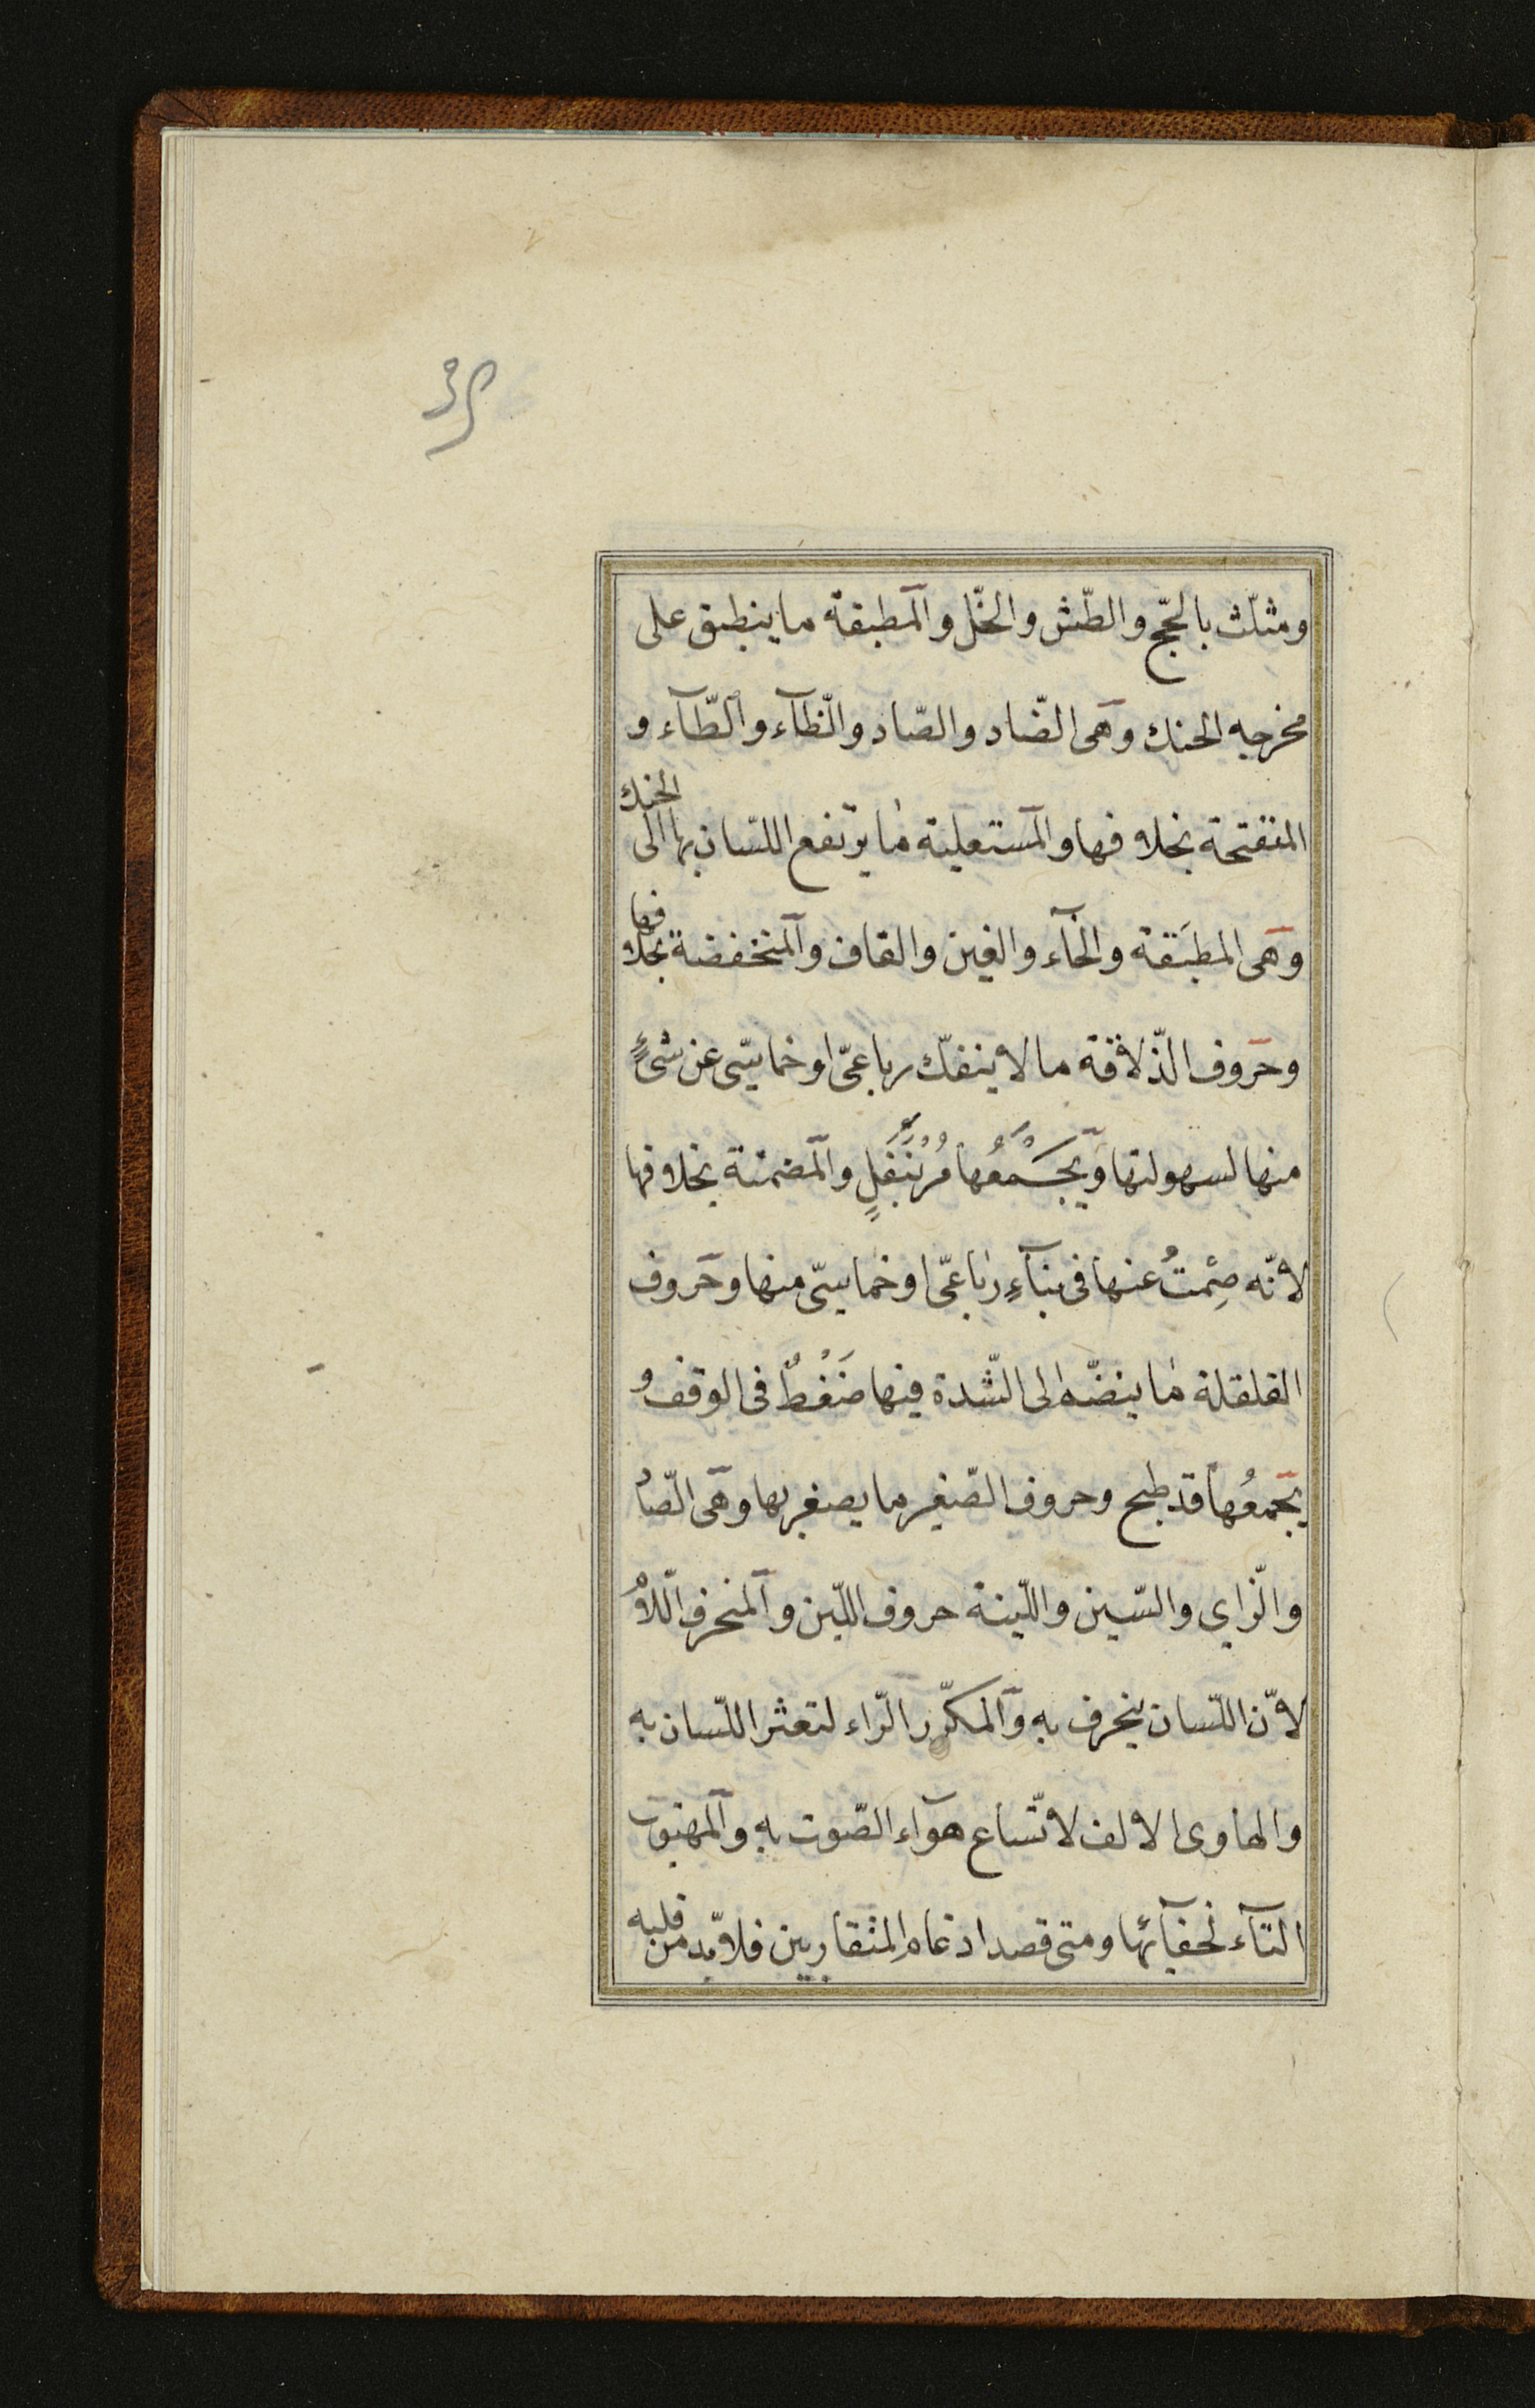 ومثلّث بالحجّ والطّش والخّل والمطبقة ما ينطبق على
مخرجه الحنك وهى الضّاد والصّاد والظّآء والطّآء و
المنفتحة بخلافها والمستعلية ما يرتفع اللسان بها الى الحنك
وهى المطبَقة والخآء والغين والقاف والمنخفضة بخلافها
وحروف الذّلاقة ما لا ينفكّ رباعىّ او خماسىّ عن شىءٍ
منها لسهولتها ويَجْمَعُها مُرْ بِنَفَلٍ والمصمتة بخلافها
لانّه صُمِتُ عنها فى بنآءِ رباعىّ او خماسىّ منها وحروف
القلقلة ما ينضمّ الى الشّدة فيها ضَغْطٌ فى الوقف و
يجمعُها قد طبج وحروف الصّفير ما يصفر بها وهى الصّاد
والزّاي والسّين واللّينة حروف اللّين والمنحرف اللّامُ
لانّ اللّسان ينحرف به والمكرّر الرّاء لتعثر اللّسان به
والهاوى الالف لاتّساع هوآء الصّوت به والمهتوت
التّآء لخفآئها ومتى قصد ادغام المتقاربين فلا بّد من قلبه